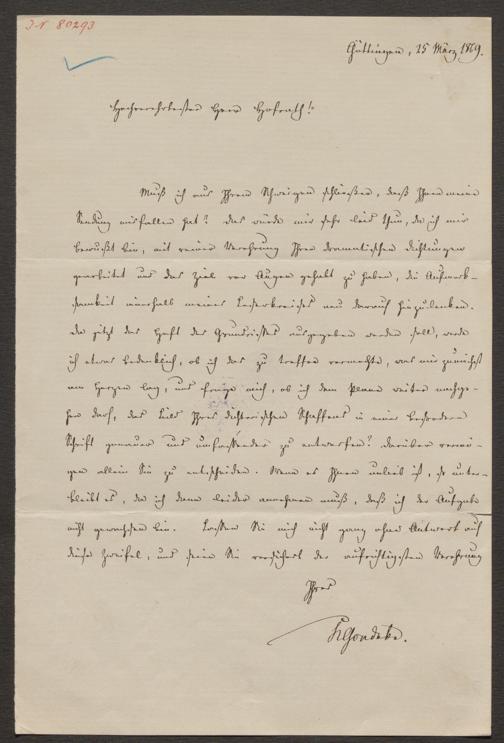 I. N. 80293
Göttingen, 25 März 1869.
Hochverehrtester Herr Hofrath!
Muß ich aus Ihrem Schweigen schließen, daß Ihnen meine
Sendung misfallen hat? Das würde mir sehr leid thun, da ich mir
bewußt bin, mit reiner Verehrung Ihrer dramatischen Dichtungen
gearbeitet und das Ziel vor Augen gehabt zu haben, die Aufmerk-
samkeit innerhalb meines Leserkreises neu darauf hinzulenken.
Da jetzt das Heft des Grundrisses ausgegeben werden soll, werde
ich etwas bedenklich, ob ich das zu treffen vermochte, was mir zunächst
am Herzen lag, und frage mich, ob ich dem Plane weiter nachge-
hen darf, das Bild Ihres dichterischen Schaffens in einer besondern
Schrift genauer und umfassender zu entwerfen? Darüber vermö-
gen allein Sie zu entscheiden. Wenn es Ihnen unlieb ist, so unter-
bleibt es, da ich dann leider annehmen muß, daß ich der Aufgabe
nicht gewachsen bin. Lassen Sie mich nicht ganz ohne Antwort auf
diese Zweifel, und seien Sie versichert der aufrichtigsten Verehrung
Ihres
KGoedeke.